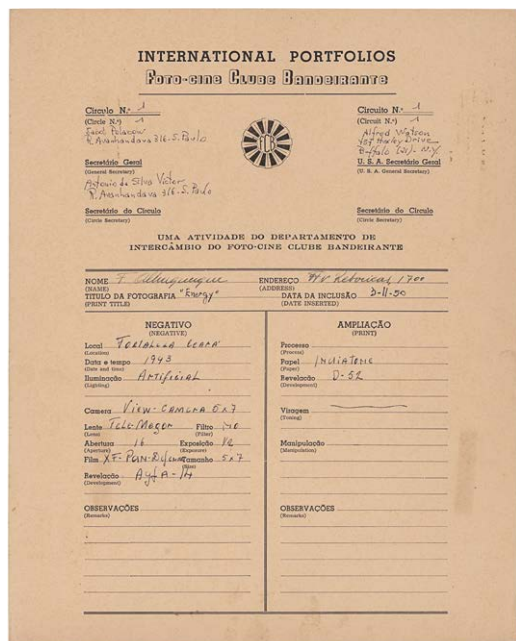 INTERNATIONAL PORTFOLIOS
FOTO-CINE CLUBE BANDEIRANTE
Circulo N.º 1
(Circle N.º) 1
Jacob Polacow
R. Avanhandava 316 - S. Paulo
Secretário Geral
(General Secretary)
Antonio da Silva Victor
R. Avanhandava 316 - S. Paulo
Secretário do Circulo
(Circle Secretary)
FCB
Circuito N.º 1
(Circuit N.º) 1
Alfred Watson
Harley Drive
Buffalo N.Y.
U. S. A. Secretário Geral
(U. S. A. General Secretary)
Secretário do Circulo
(Circle Secretary)
UMA ATIVIDADE DO DEPARTAMENTO DE
INTERCÂMBIO DO FOTO-CINE CLUBE BANDEIRANTE
NOME F. Albuquerque ENDEREÇO Av Rebouças 1700
(NAME) (ADDRESS)
TITULO DA FOTOGRAFIA "Energy" DATA DA INCLUSÃO 3-11-50
(PRINT TITLE) (DATE INSERTED)
NEGATIVO
(NEGATIVE)
Local FORTALEZA CEARÁ
(Location)
Data e tempo 1943
(Date and time)
Iluminação ARTIFICIAL
(Lighting)
Camera VIEW-CAMERA 5x7
Lente Filtro NO
(Lens) (Filter)
Abertura 16 Exposição
(Aperture) (Exposure)
Film Tamanho 5x7
(Size)
Revelação Agfa-14
(Development)
OBSERVAÇÕES
(Remarks)
AMPLIAÇÃO
(PRINT)
Processo
(Process)
Papel
(Paper)
Revelação D-52
(Development)
Viragem
(Toning)
Manipulação
(Manipulation)
OBSERVAÇÕES
(Remarks)